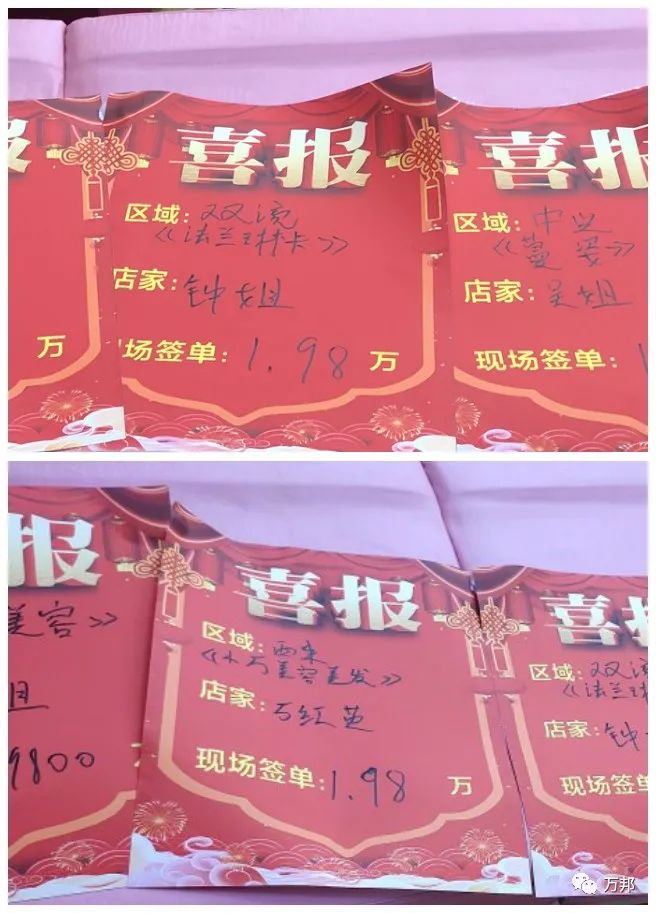 报
万
喜报
区域: 双流
《法兰琳卡》
店家: 钟姐
现场签单: 1.98 万
喜报
区域: 中兴
《蔓姿》
店家: 吴姐
现场签单: 1
报
美容》
姐
9800 万
喜报
区域: 西来
《小万美容美发》
店家: 万红英
现场签单: 1.98 万
喜报
区域: 双流
《法兰琳
店家: 钟
现场签单
万邦